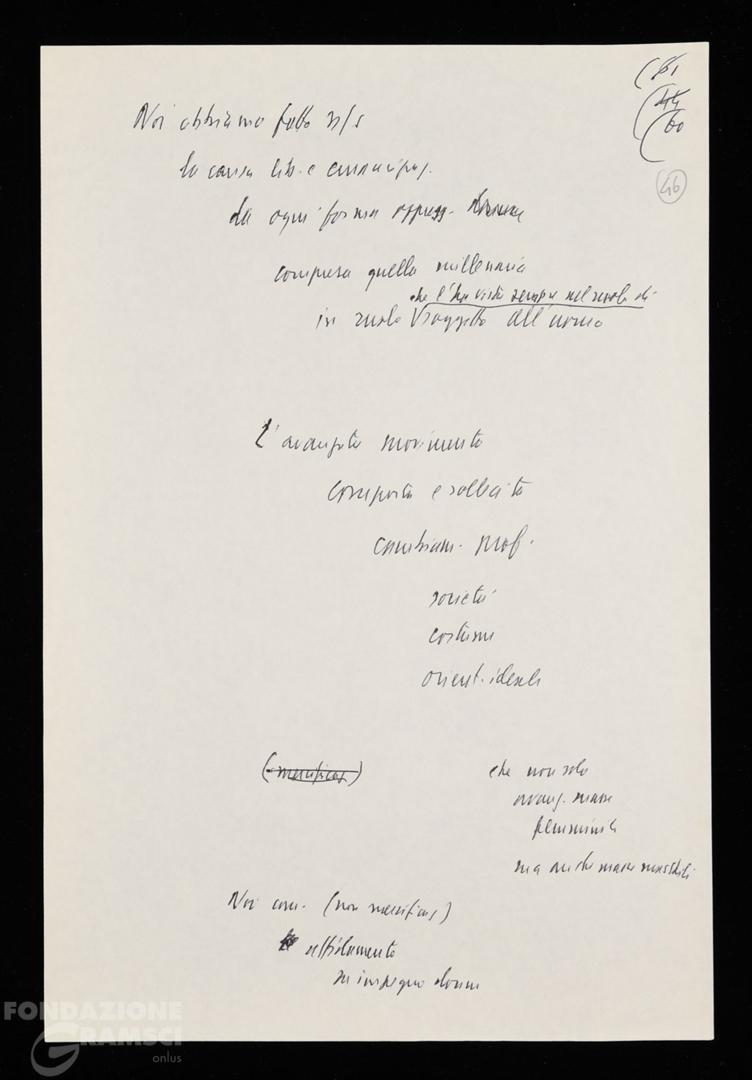 (61
(44
(60
46
Noi abbiamo fatto n/s
la causa lib. e emancipaz.
da ogni forma oppress.
compresa quella millenaria
che l'ha vista sempre nel ruolo di
in ruolo soggetto all'uomo
L'avanzata movimento
comporta e sollecita
cambiam. prof.
società
costume
orient. ideali
(mercificaz)
che non solo
avanz. masse
femminili
ma anche masse maschili
Noi com. (non mercificaz)
affidamento
su impegno donne
FONDAZIONE
GRAMSCI
onlus